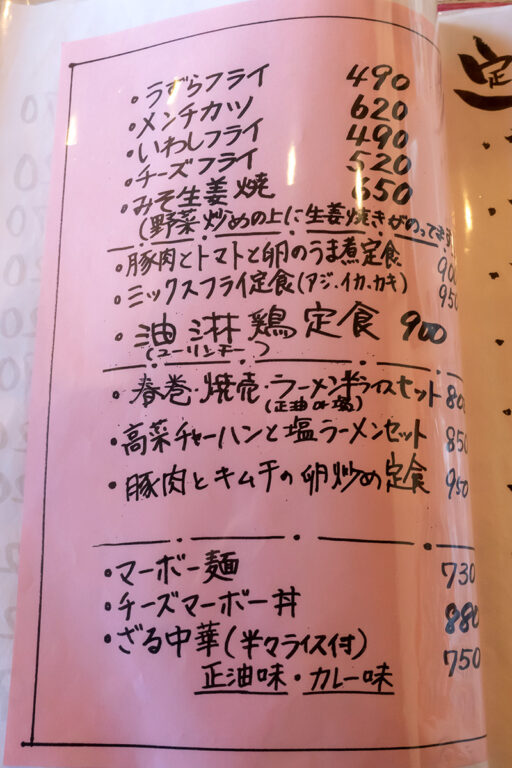 ・うずらフライ 490
・メンチカツ 620
・いわしフライ 490
・チーズフライ 520
・みそ生姜焼 650
(野菜炒めの上に生姜焼きがのってます
・豚肉とトマトと卵のうま煮定食 900
・ミックスフライ定食(アジ.イカ.カキ) 950
・油淋鶏定食 900
(ユーリンチー)
・春巻・焼売・ラーメン半ライスセット 800
(正油or塩)
・高菜チャーハンと塩ラーメンセット 850
・豚肉とキムチの卵炒め定食 950
・マーボー麺 730
・チーズマーボー丼 880
・ざる中華(半ライス付) 750
正油味・カレー味
定